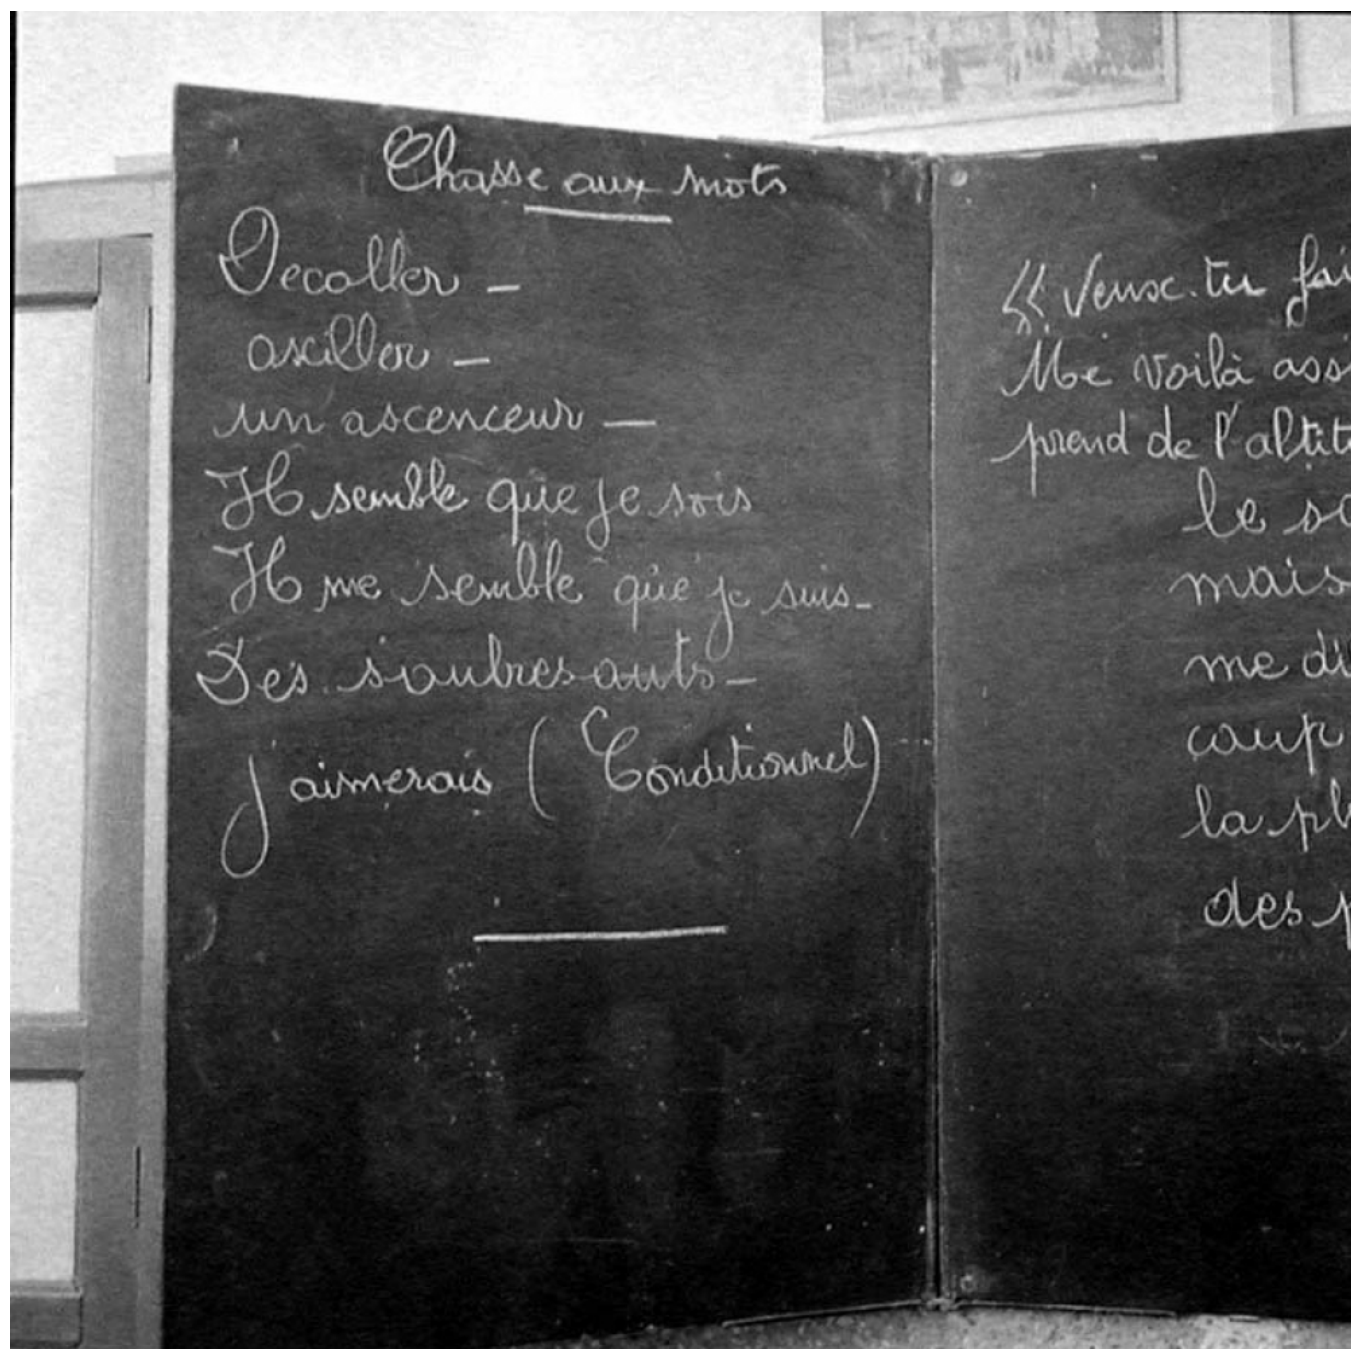 Chasse aux mots
Decoller —
osciller —
un ascenceur —
Il semble que je sois
Il me semble que je suis -
Des soubresauts -
J'aimerais (Conditionnel)
« Veux-tu fai
Me voilà ass
prend de l'altit
le so
mais
me di
coup
la pl
des p